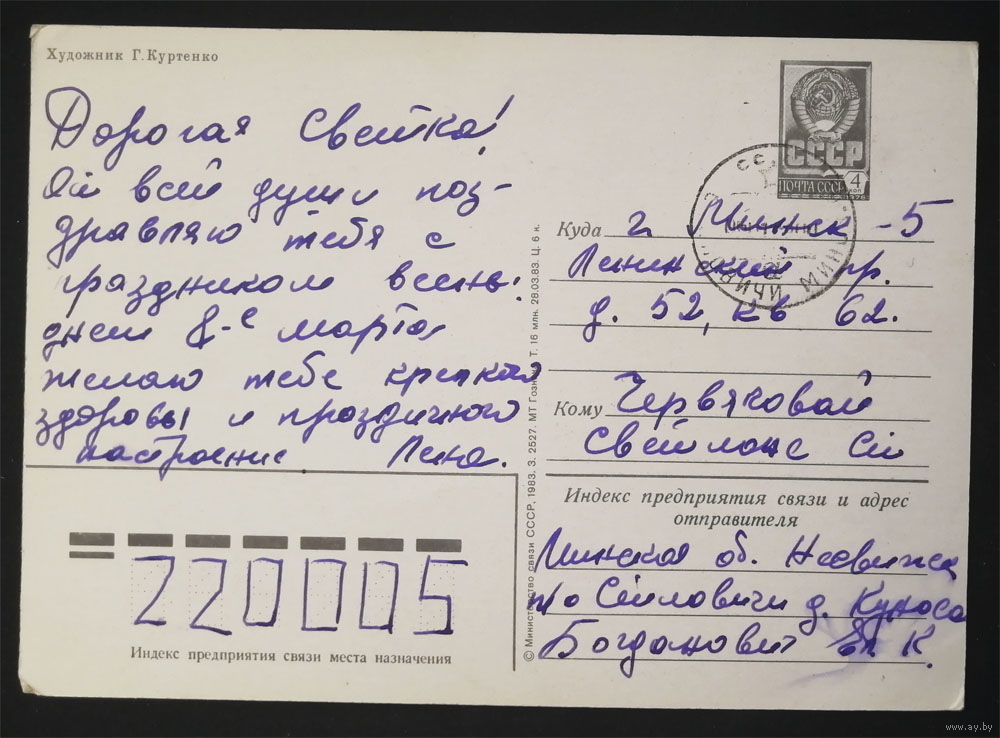 Художник Г. Куртенко
Дорогая Светка!
От всей души поз-
дравляю тебя с
праздником весны:
днем 8-е марта
желаю тебе крепкого
здоровья и праздничного
настроение Лена.
СССР
ПОЧТА СССР
4
КОП
1976
Куда г. Минск - 5
Ленинский пр.
д. 52, кв 62.
Кому Червяковой
Светлане Ст
Индекс предприятия связи и адрес
отправителя
Минская об. Несвижск
п/о Сейловичи д. Куноса
Богданович К.
220005
Индекс предприятия связи места назначения
© Министерство связи СССР, 1983. З. 2527. МТ Гознака. Т. 16 млн. 28.03.83. Ц. 6 к.
www.ay.by